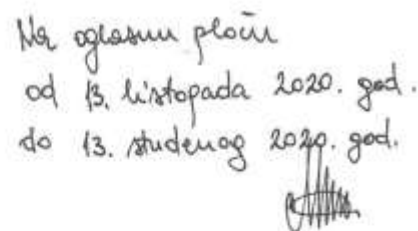 Na oglasnu ploču
od 13. listopada 2020. god.
do 13. studenog 2020. god.